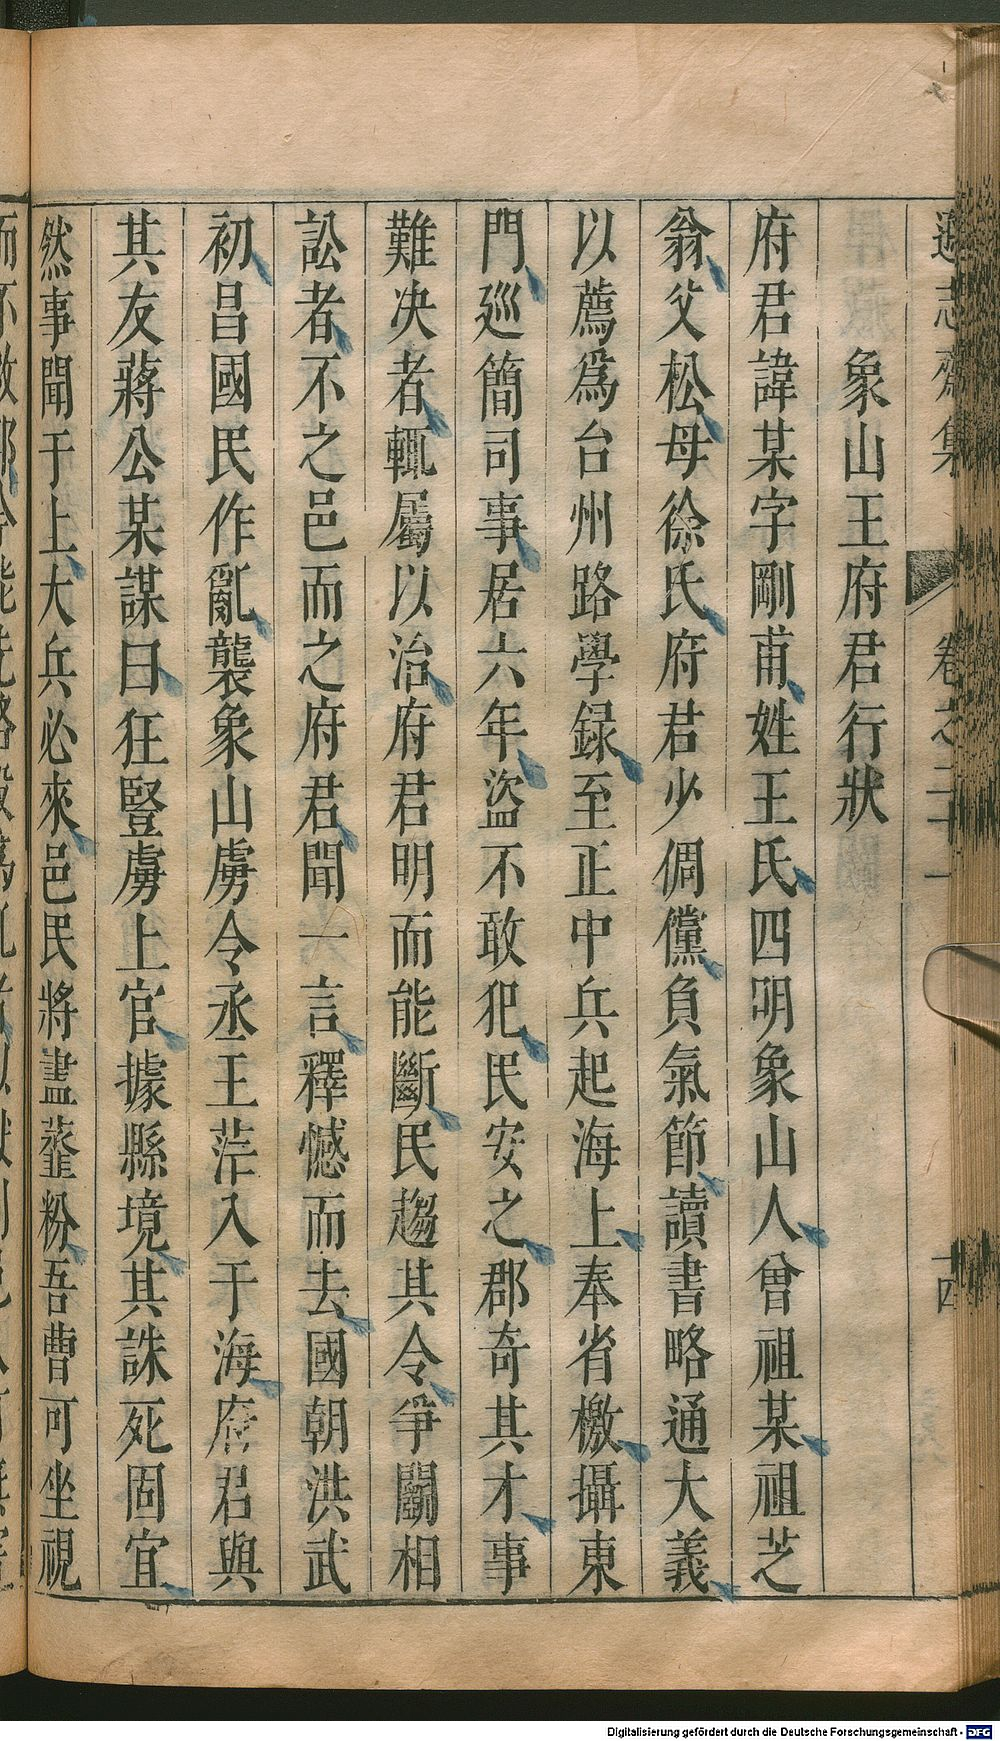 遜志齋集 卷之二十一 十四
象山王府君行狀
府君諱某字剛甫姓王氏四明象山人曾祖某祖芝
翁父松母徐氏府君少倜儻負氣節讀書略通大義
以薦爲台州路學錄至正中兵起海上奉省檄攝東
門巡簡司事居六年盜不敢犯民安之郡奇其才事
難決者輒屬以治府君明而能斷民趨其令爭鬭相
訟者不之邑而之府君聞一言釋憾而去國朝洪武
初昌國民作亂襲象山虜令丞王茫入于海府君與
其友蔣公某謀曰狂豎虜上官據縣境其誅死固宜
然事聞于上大兵必來邑民將盡虀粉吾曹可坐視
Digitalisierung gefördert durch die Deutsche Forschungsgemeinschaft - DFG